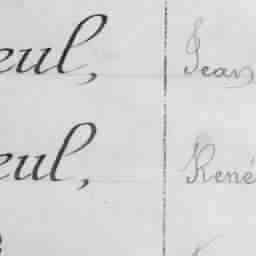 eul, Jean
eul, René